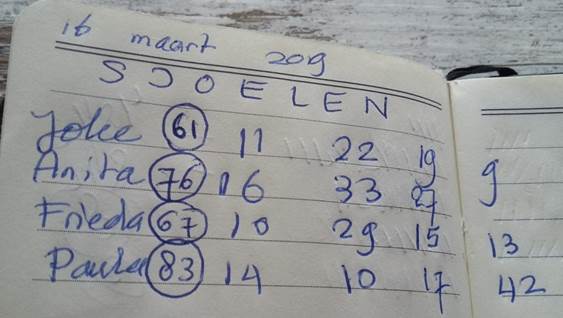 16 maart 209
SJOELEN
Joke 61 11 22 19 9
Anita 76 16 33 27
Frieda 67 10 29 15 13
Paula 83 14 10 17 42